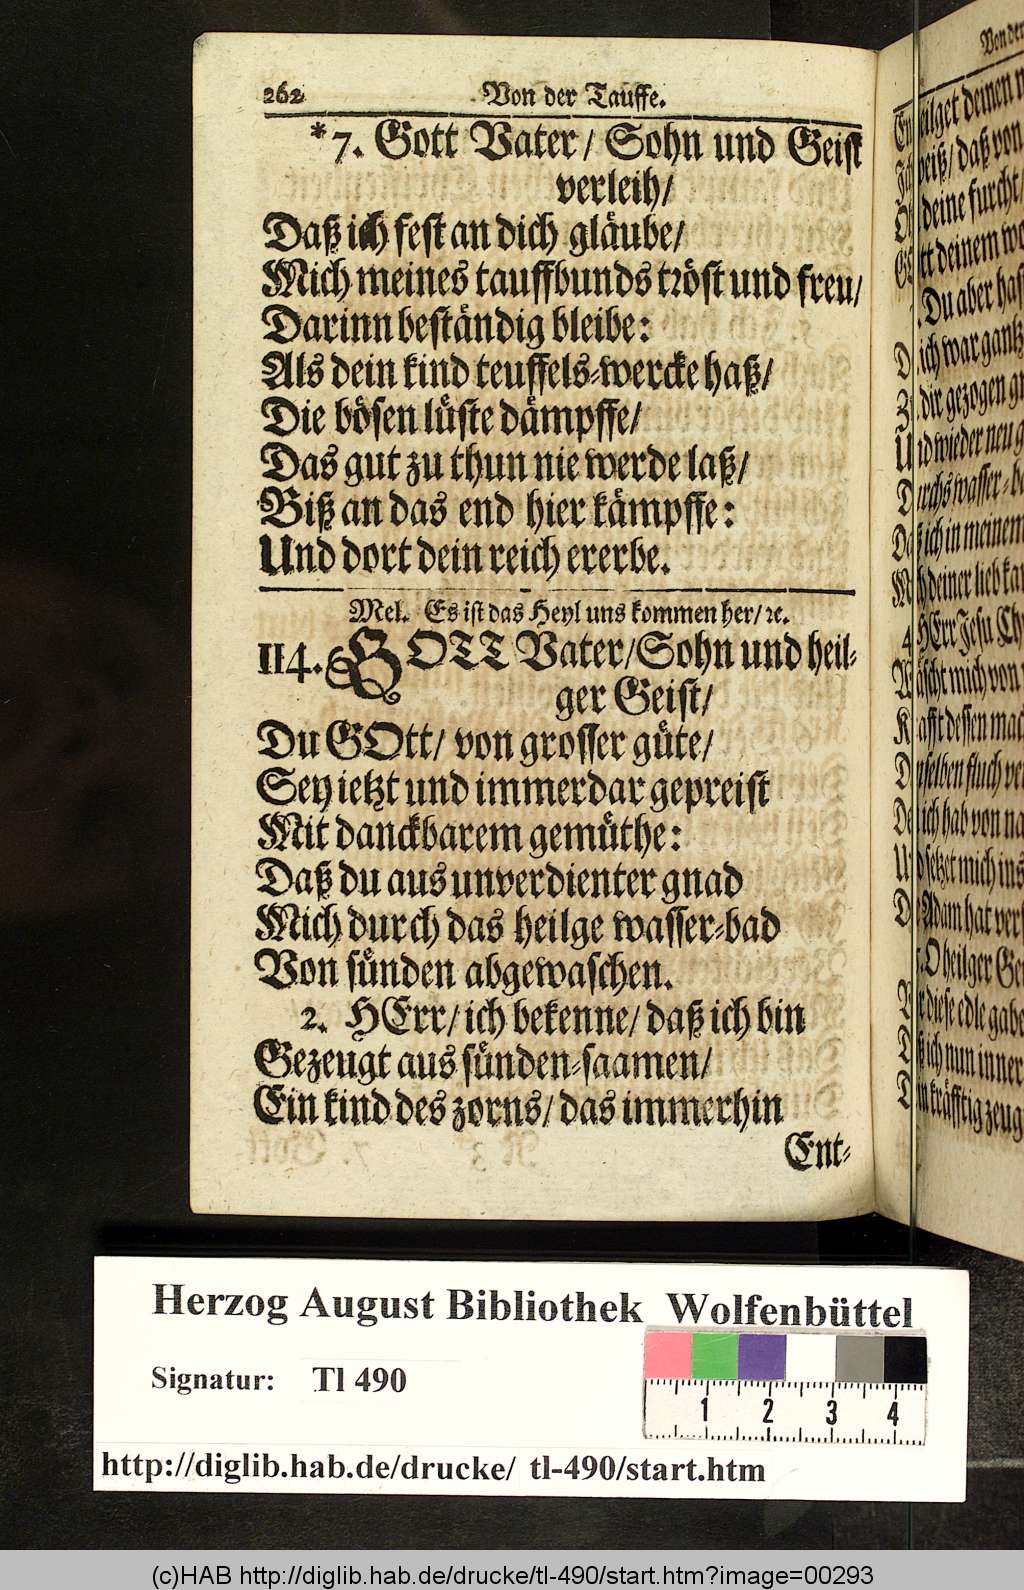 262 Von der Tauffe.
*7. Gott Vater / Sohn und Geist
verleih /
Daß ich fest an dich gläube /
Mich meines tauffbunds tröst und freu /
Darinn beständig bleibe:
Als dein kind teuffels-wercke haß /
Die bösen lüste dämpffe /
Das gut zu thun nie werde laß /
Biß an das end hier kämpffe:
Und dort dein reich ererbe.
Mel. Es ist das Heyl uns kommen her / ꝛc.
114. GOTT Vater / Sohn und heil-
ger Geist /
Du GOtt / von grosser güte /
Sey ietzt und immerdar gepreist
Mit danckbarem gemüthe:
Daß du aus unverdienter gnad
Mich durch das heilge wasser-bad
Von sünden abgewaschen.
2. HErr / ich bekenne / daß ich bin
Gezeugt aus sünden-saamen /
Ein kind des zorns / das immerhin
Ent-
Von der
heilget deinen
daß von
deine furcht /
deinem
Du aber hast
ich war gantz
dir gezogen
Und wieder neu
Durchs wasser-
Daß ich in meinem
deiner lieb
4. HErr Jesu
Wäscht mich von
Krafft dessen
Denselben fluch
ich hab von
Und setzet mich ins
Adam hat
O heilger
diese edle
Daß ich nun
kräfftig
Herzog August Bibliothek Wolfenbüttel
Signatur: Tl 490
1 2 3 4
http://diglib.hab.de/drucke/ tl-490/start.htm
(c)HAB http://diglib.hab.de/drucke/tl-490/start.htm?image=00293